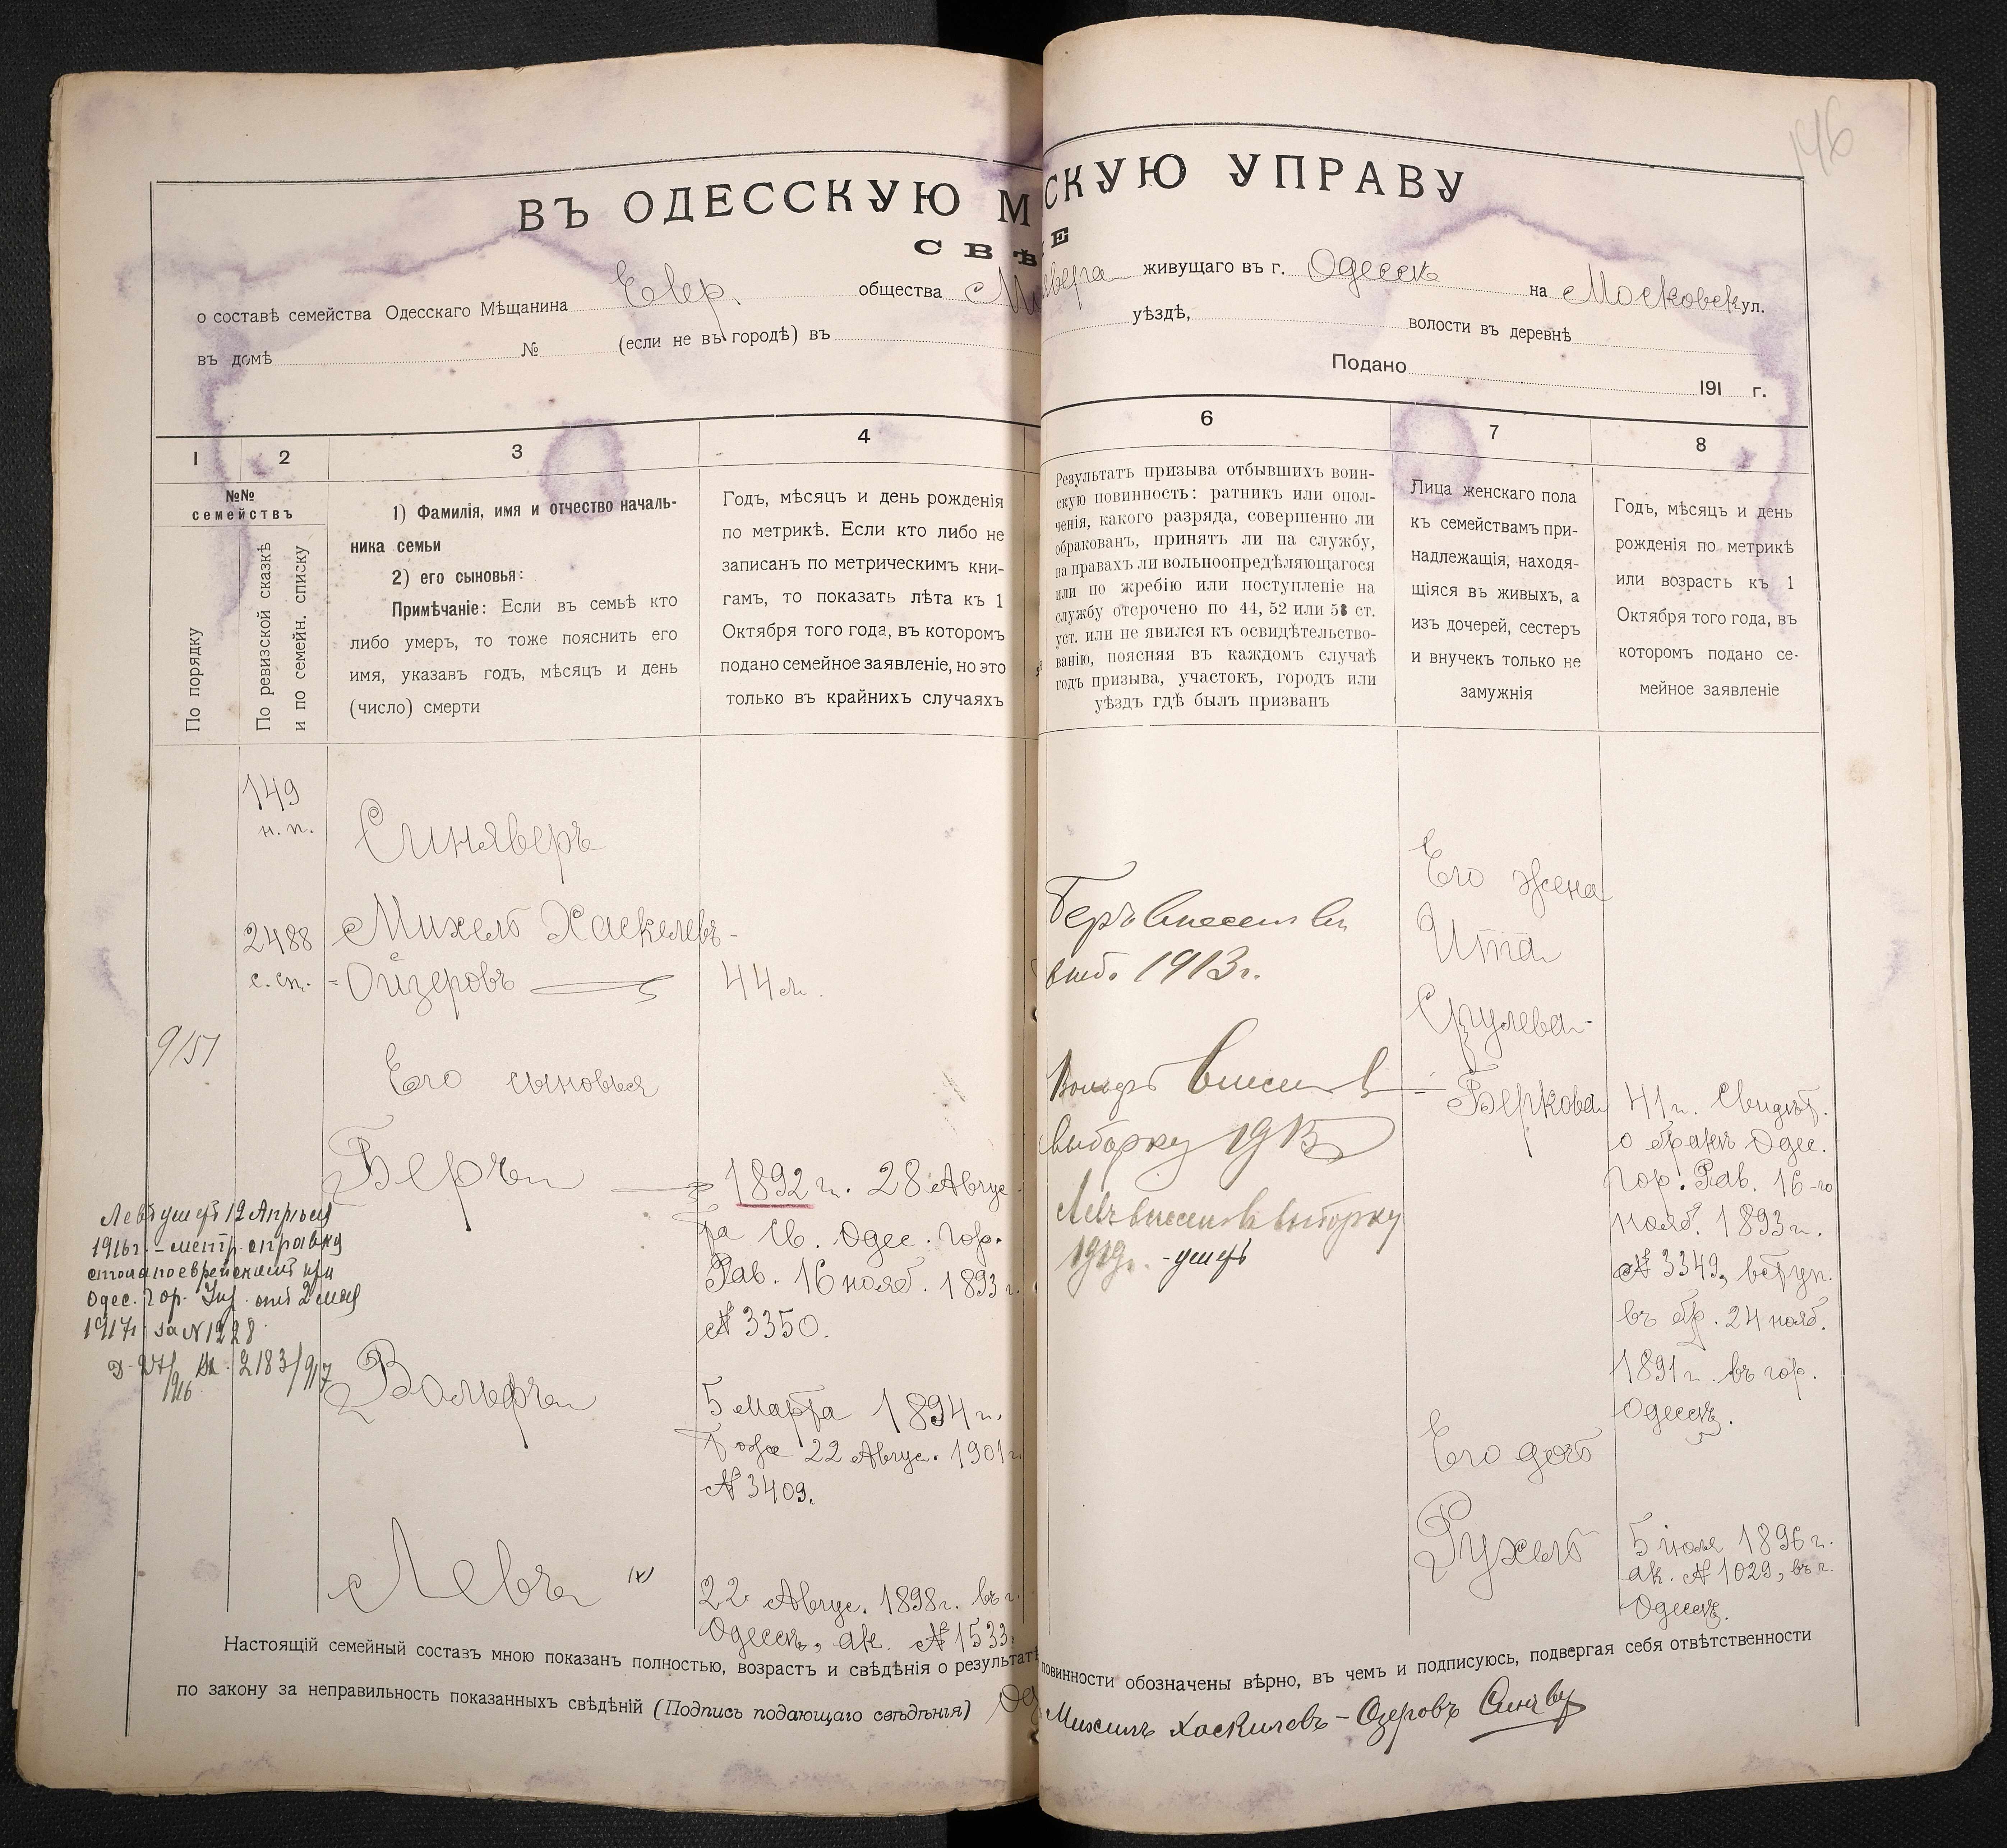 146
ВЪ ОДЕССКУЮ М СКУЮ УПРАВУ
СВѢ Е
о составѣ семейства Одесскаго Мѣщанина Евр. общества живущаго въ г. Одессѣ на Московск ул.
въ домѣ № (если не въ городѣ) въ уѣздѣ, волости въ деревнѣ
Подано 191 г.
1 2 3 4
№№
семействъ
По порядку
По ревизской сказкѣ
и по семейн. списку
1) Фамилія, имя и отчество началь-
ника семьи
2) его сыновья:
Примѣчаніе: Если въ семьѣ кто
либо умеръ, то тоже пояснить его
имя, указавъ годъ, мѣсяцъ и день
(число) смерти
Годъ, мѣсяцъ и день рожденія
по метрикѣ. Если кто либо не
записанъ по метрическимъ кни-
гамъ, то показать лѣта къ 1
Октября того года, въ которомъ
подано семейное заявленіе, но это
только въ крайнихъ случаяхъ
6 7 8
Результатъ призыва отбывшихъ воин-
скую повинность: ратникъ или опол-
ченія, какого разряда, совершенно ли
обракованъ, принятъ ли на службу,
на правахъ ли вольноопредѣляющагося
или по жребію или поступленіе на
службу отсрочено по 44, 52 или 58 ст.
уст. или не явился къ освидѣтельство-
ванію, поясняя въ каждомъ случаѣ
годъ призыва, участокъ, городъ или
уѣздъ гдѣ былъ призванъ
Лица женскаго пола
къ семействамъ при-
надлежащія, находя-
щіяся въ живыхъ, а
изъ дочерей, сестеръ
и внучекъ только не
замужнія
Годъ, мѣсяцъ и день
рожденія по метрикѣ
или возрастъ къ 1
Октября того года, въ
которомъ подано се-
мейное заявленіе
149
н. п.
Синяверъ
2488
с. сп.
Михель Хаскелевъ-
-Ойзеровъ 44 л.
9/51
Его сыновья
Беръ 1892 г. 28 Авгус-
та Св. Одес. Гор.
Рав. 16 нояб. 1893 г.
№ 3350.
Левъ умеръ 12 Апрѣля
1916 г. - метр. справку
стола по еврейскимъ
Одес. Гор. отъ 2 мая
1917 г. за № 1228
2183/917
1916
Вольфъ 5 Марта 1894 г.
тоже 22 Авгус. 1901 г.
№ 3409.
Левъ 22 Авгус. 1898 г. въ г.
Одессѣ, ак. № 1533.
Беръ внесенъ въ
выб. 1913 г.
Вольфъ внесенъ въ
выборку 1915
Левъ внесенъ въ выборку
1919 г. - умеръ
Его жена
Ита
Срулева-
-Беркова 41 г. Свидѣт.
о бракѣ Одес.
Гор. Рав. 16-го
нояб. 1893 г.
№ 3349, вступ.
въ бр. 24 нояб.
1891 г. въ гор.
Одессѣ.
Его дочь
Рухель 5 іюля 1896 г.
ак. № 1029, въ г.
Одессѣ.
Настоящій семейный составъ мною показанъ полностью, возрастъ и свѣдѣнія о результатѣ повинности обозначены вѣрно, въ чемъ и подписуюсь, подвергая себя отвѣтственности
по закону за неправильность показанныхъ свѣдѣній (Подпись подающаго свѣдѣнія) Михель Хаскилевъ-Озеровъ Синявер